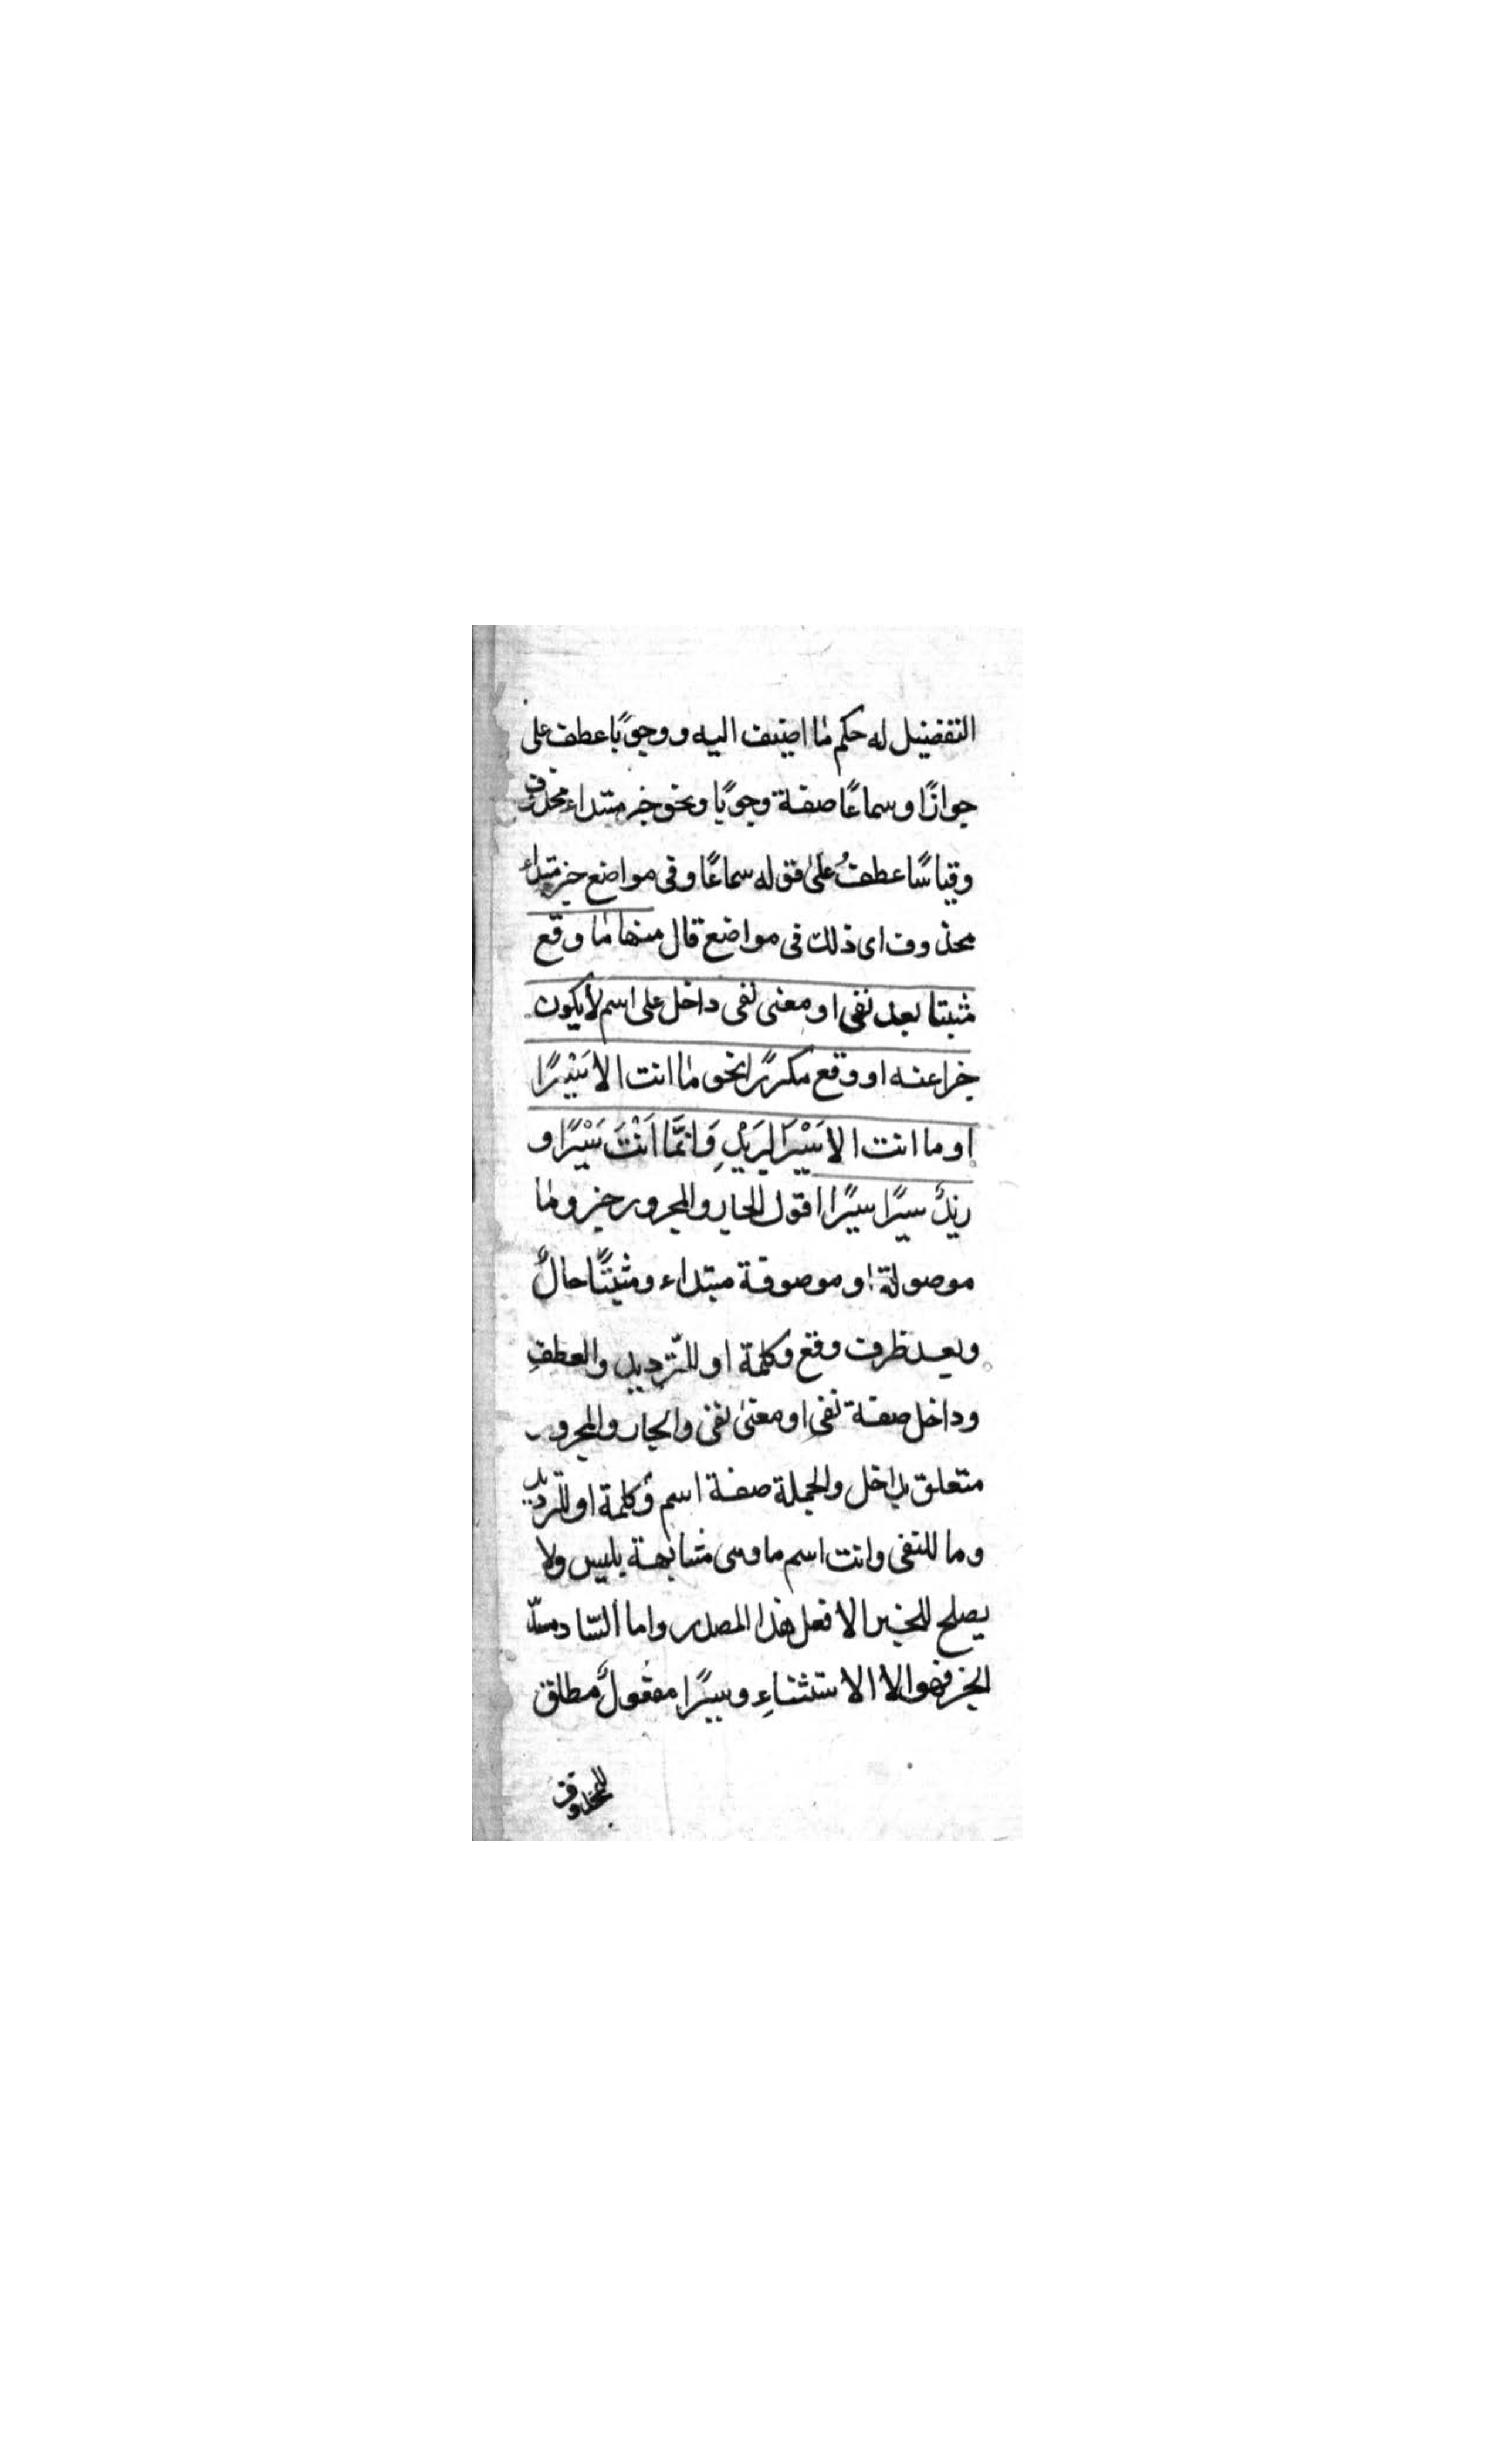 التفضيل له حكم ما اضيف اليه ووجوبًا عطف على
جوازًا وسماعًا صفة وجوبًا ونحو خبر مبتداء محذوف
وقياسًا عطفٌ على قوله سماعًا وفى مواضع خبر مبتداء
محذوف اى ذلك فى مواضع قال منها ما وقع
مثبتا بعد نفى او معنى نفى داخل على اسم لا يكون
خبرا عنه او وقع مكررًا نحو ما انت الا سَيْرًا
او ما انت الا سَيْرَ البَرِيْدِ وَانَّمَا اَنْتَ سَيْرًا و
زيدٌ سيرًا سيرًا اقول الجار والمجرور خبر وما
موصولة او موصوفة مبتداء ومثبتًا حالٌ
وبعد ظرف وقع وكلمة او للترديد والعطفِ
وداخل صفة نفى او معنى نفى والجار والمجرور
متعلق بداخل والجملة صفة اسم وكلمة او للترديد
وما للنفى وانت اسم ما وهى مشابهة بليس ولا
يصلح للخبر الا فعل هذا المصدر واما السّاد مسدّ
الخبر فهو الا الاستثناءِ وسيرًا مفعولٌ مطلق
للمحذوف